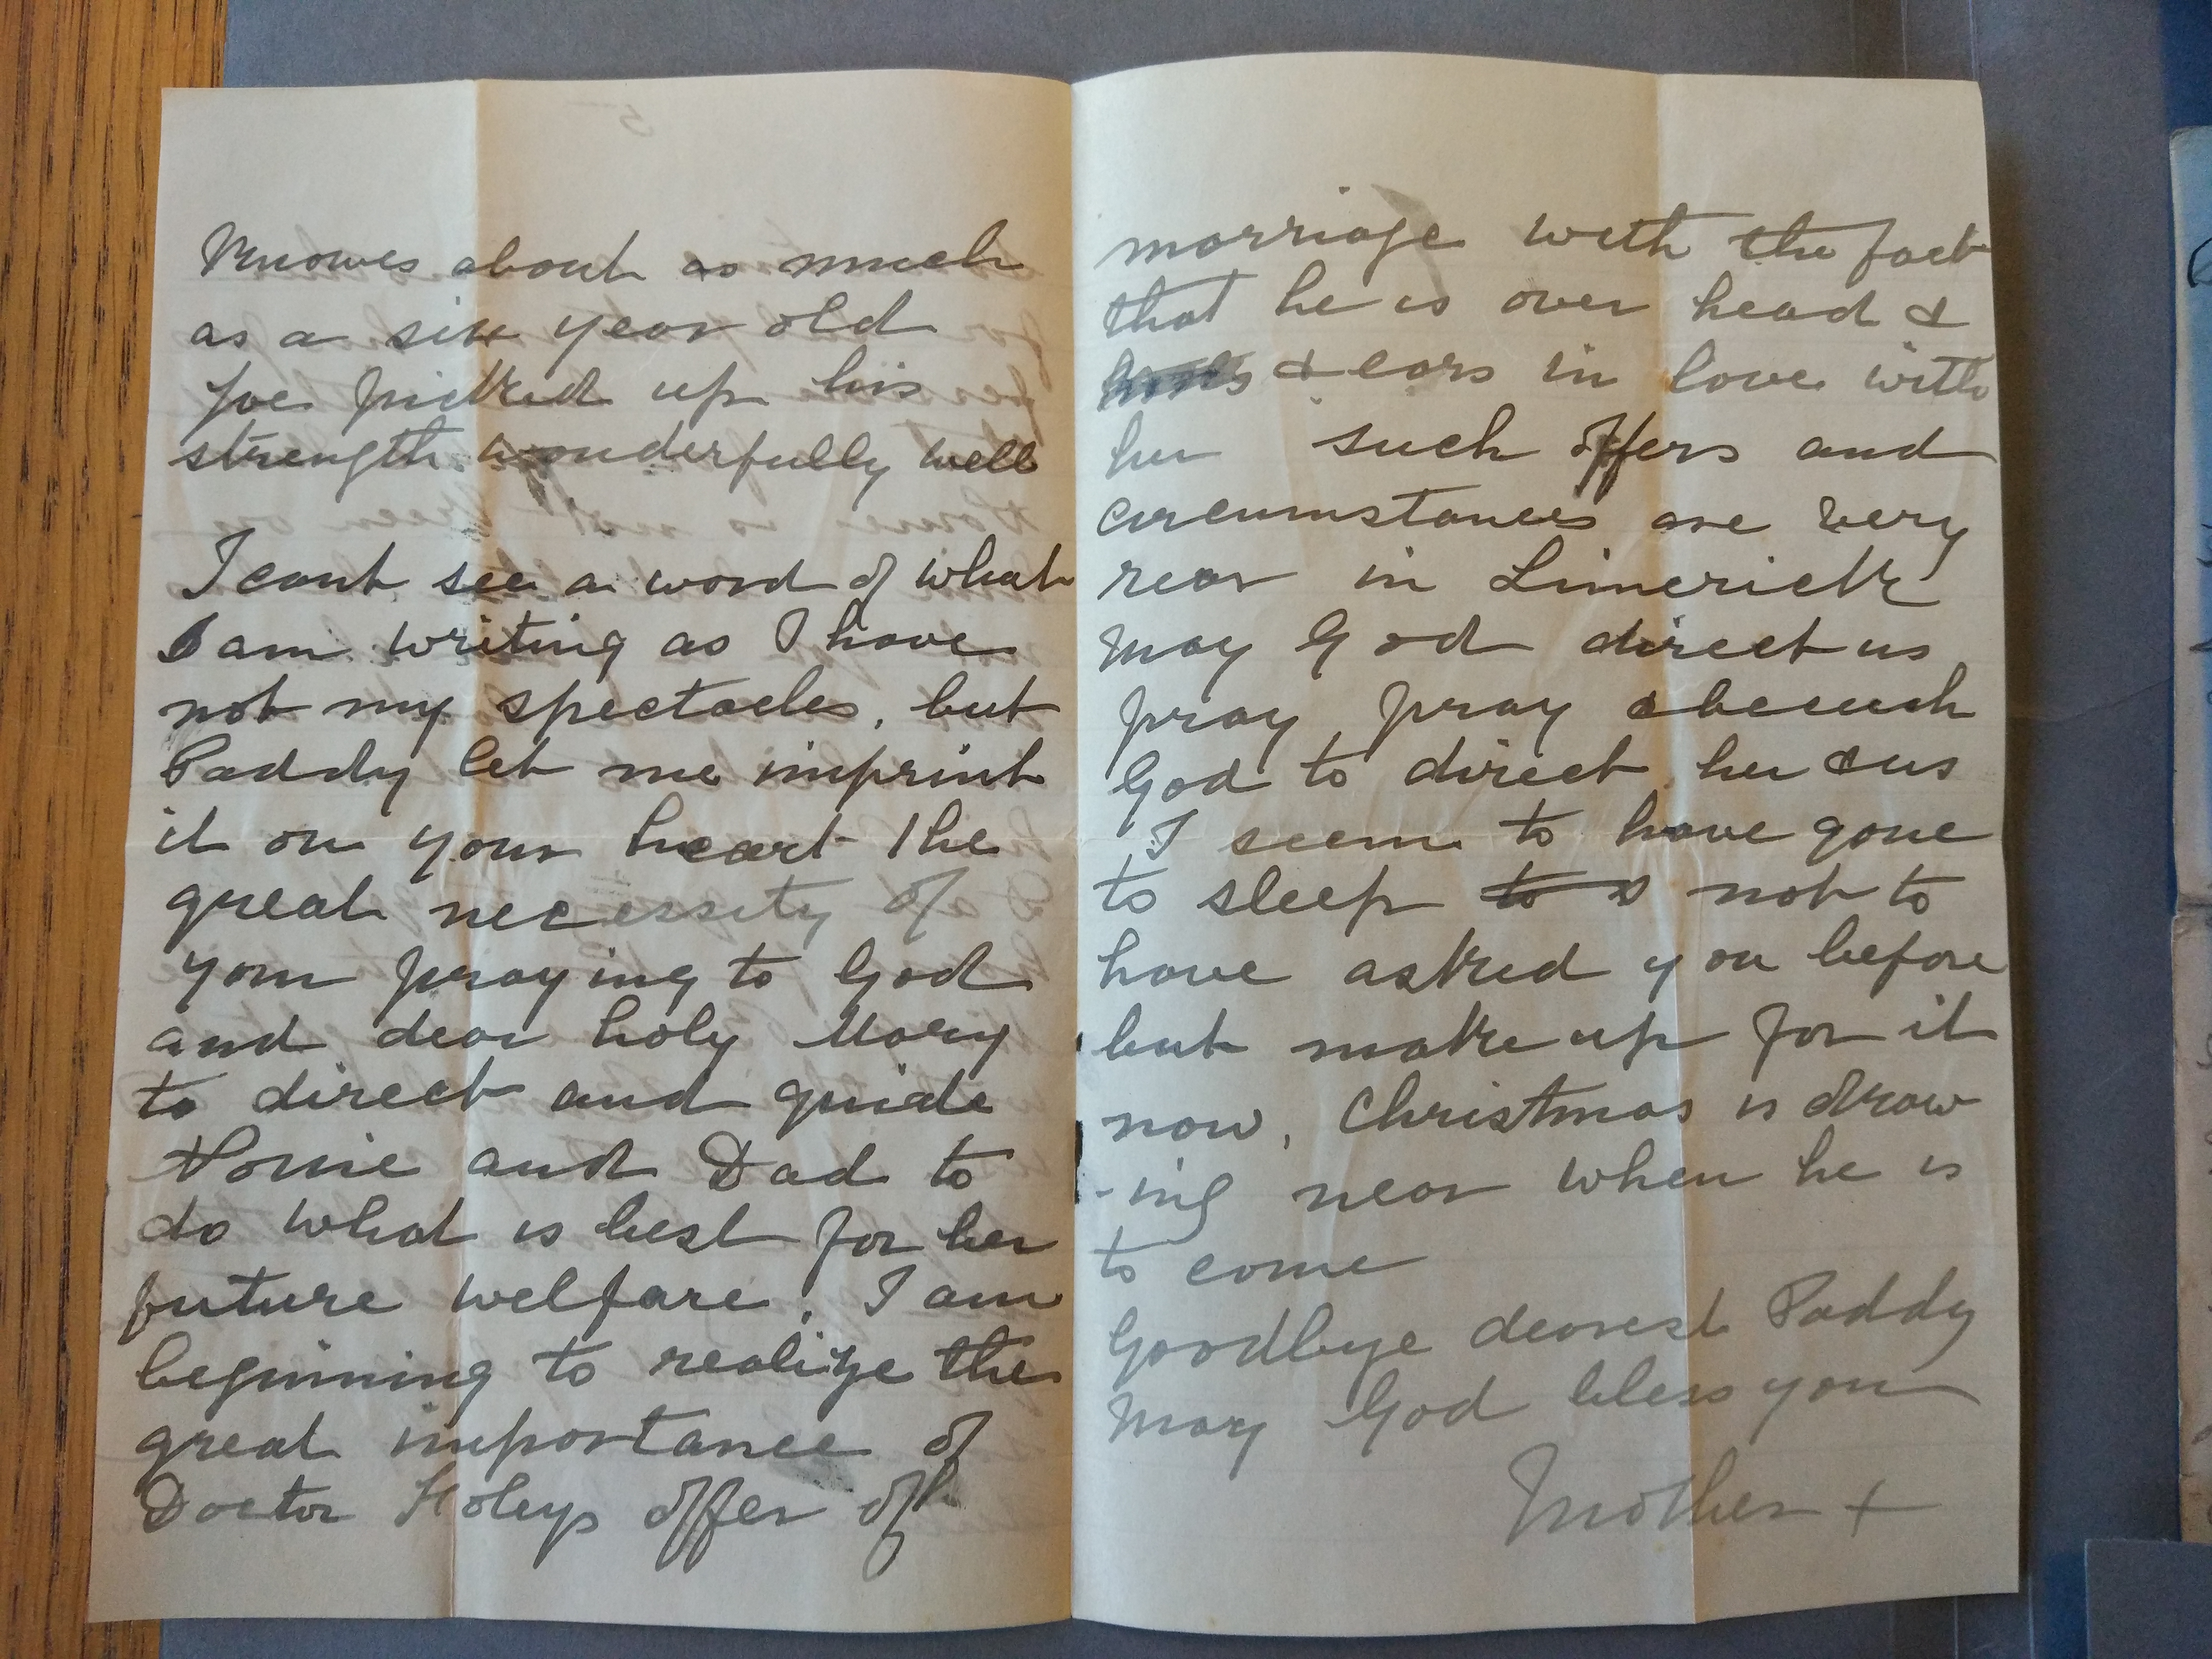 Knowes about as much
as a six year old
Joe picked up his
strength wonderfully well
I cant see a word of what
I am writing as I have
not my spectacles, but
Paddy let me imprint
it on your heart the
great necessity of
your praying to God
and dear holy Mary
to direct and guide
and Dad to
do what is best for her
future welfare. I am
beginning to realize the
great importance of
Doctor offer of
marriage with the fact
that he is over head &
& ears in love with
her such offers and
circumstances are very
rear in Limerick
May God direct us
pray pray & beseech
God to direct her & us
I seem to have gone
to sleep to not to
have asked you before
but make up for it
now, Christmas is draw
-ing near when he is
to come
Goodbye dearest Paddy
May God bless you
Mother +